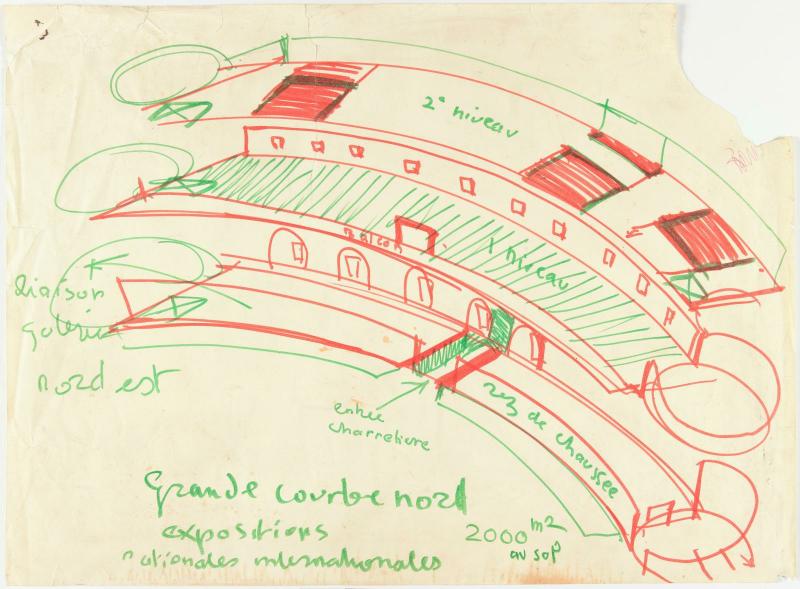 2e niveau
balcon
1 niveau
liaison
galerie
nord est
entrée
charretière
rez de chaussée
Grande courbe nord
expositions
nationales internationales
2000 m2
au sol